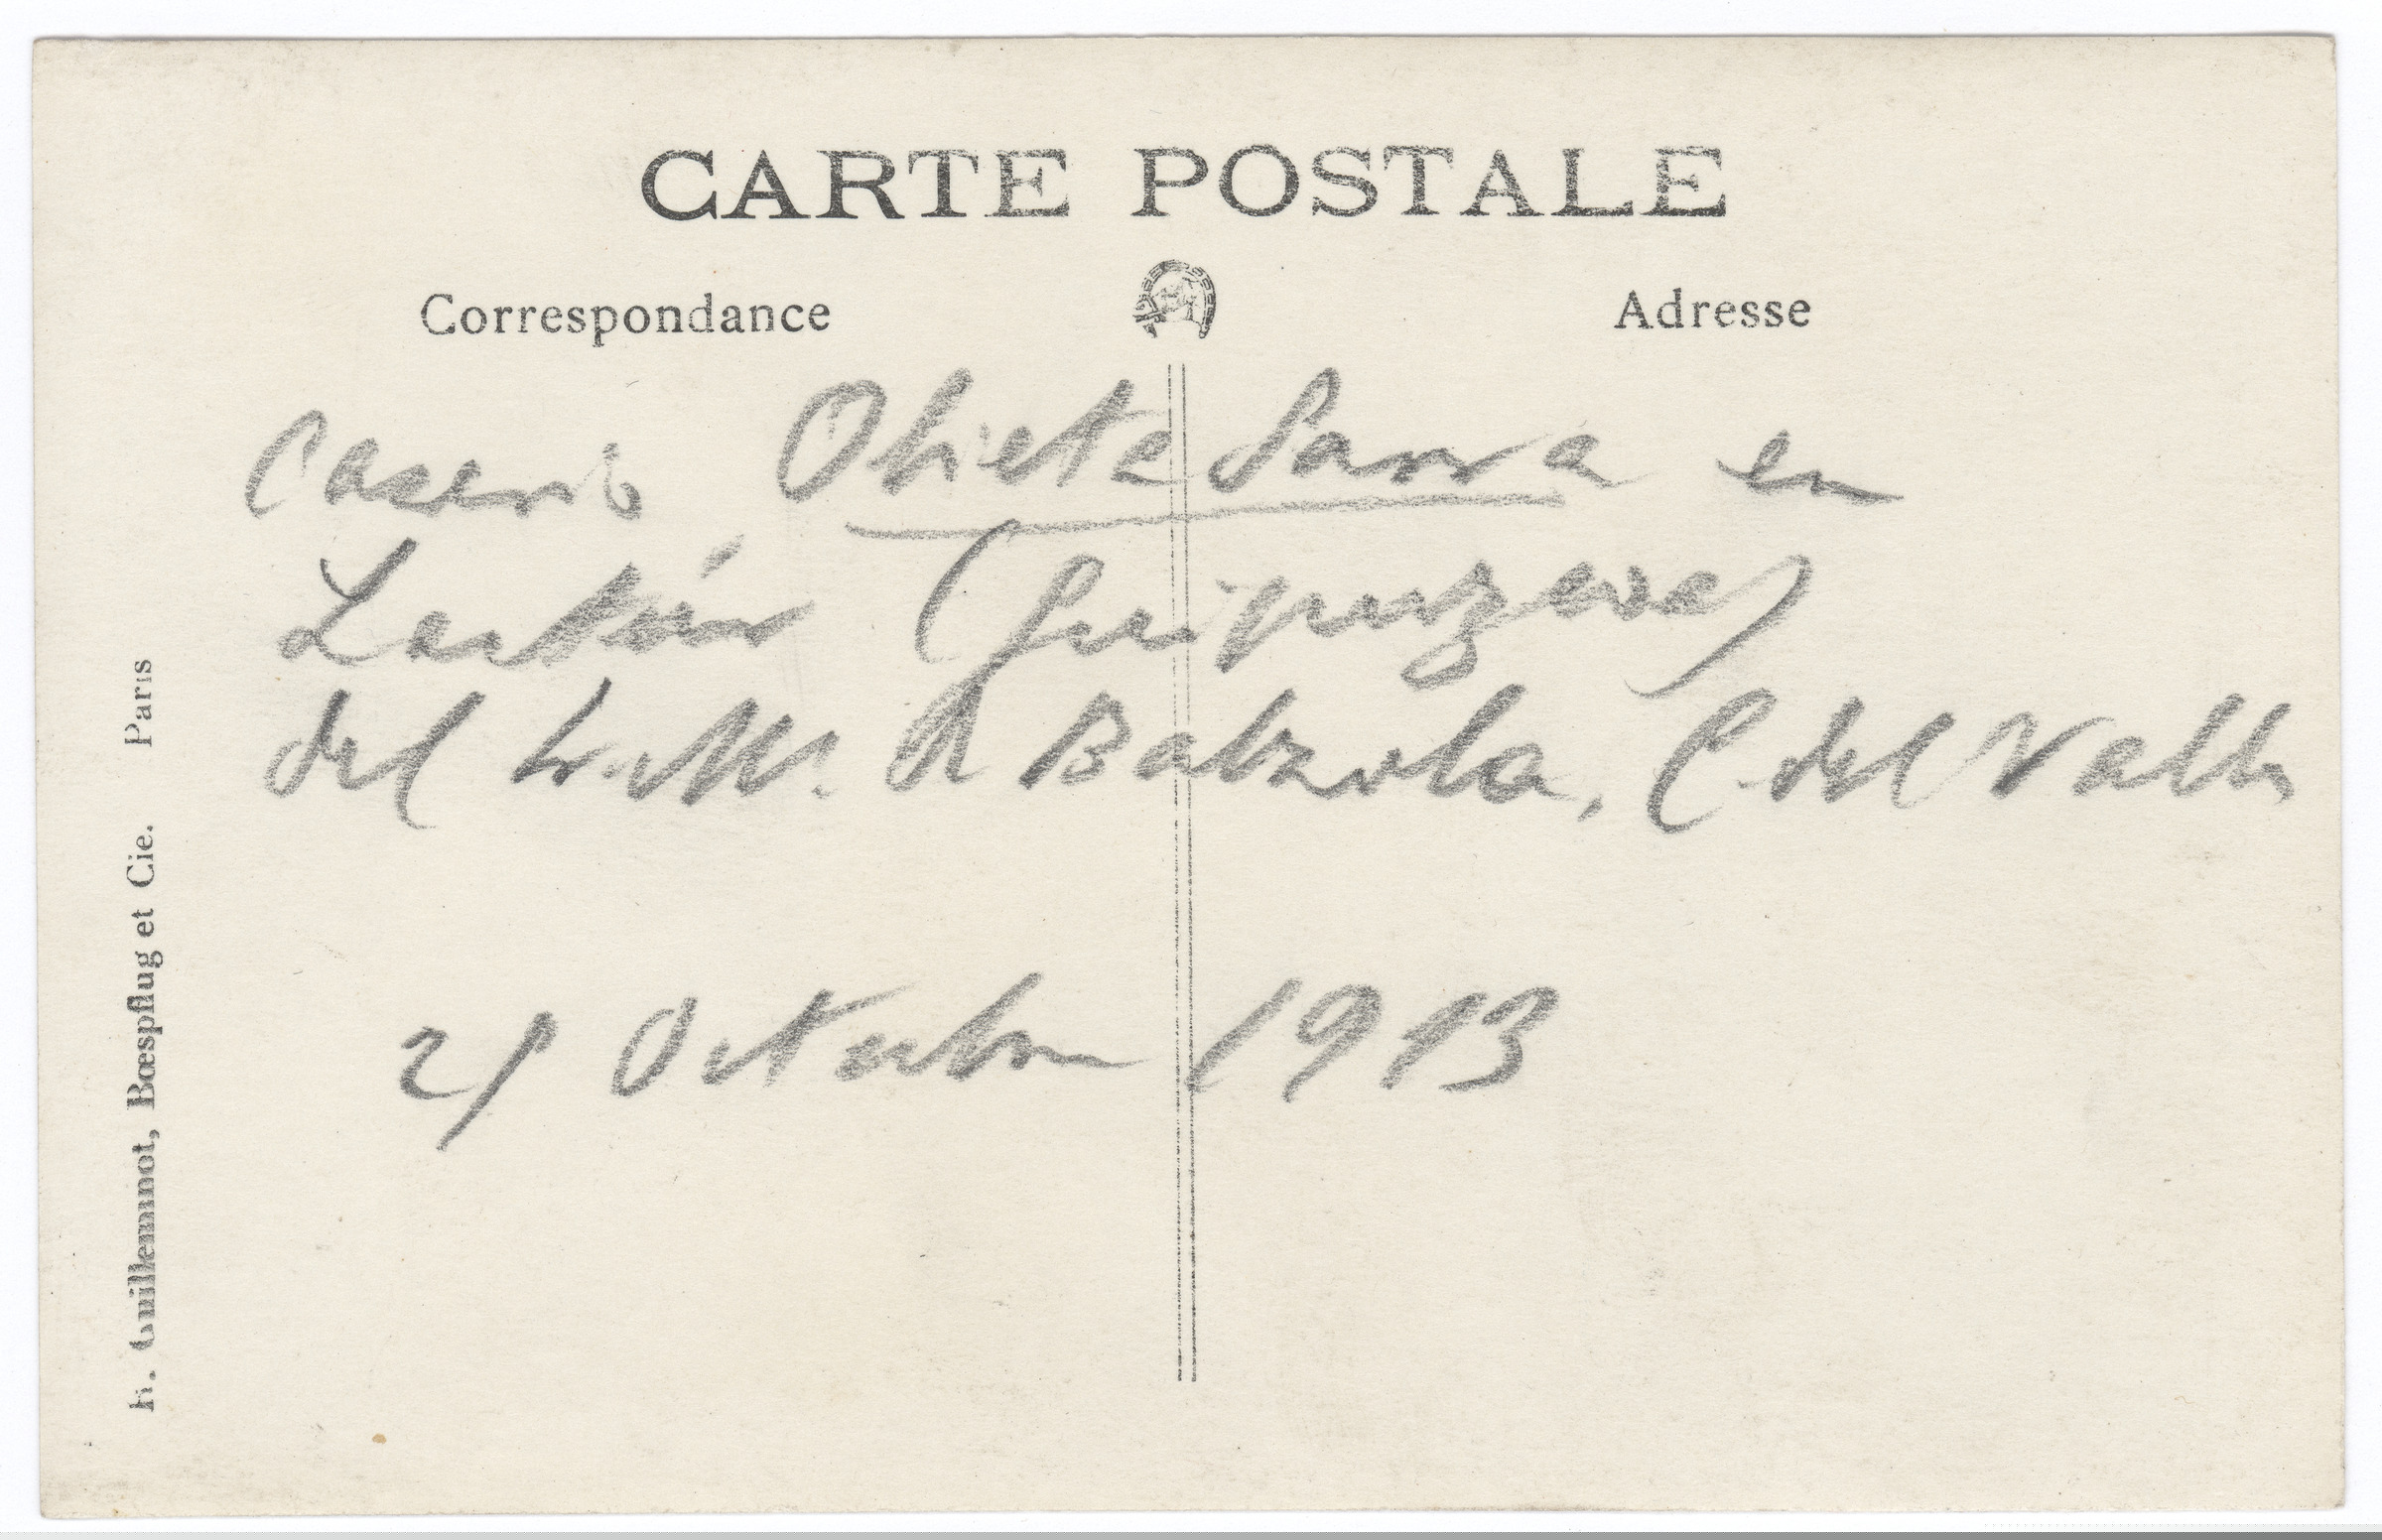 CARTE POSTALE
Correspondance
Adresse
Caserio Obieta Sarra en
Lastúr (Guipuzcoa)
del S. M. A Balzola, C. del Valle
21 Octubre 1913
R. Guilleminot, Bœspflug et Cie. Paris